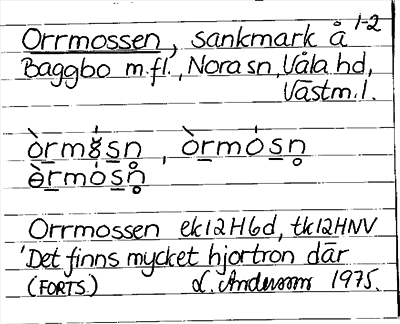 Orrmossen, sankmark å 1-2
Baggbo m.fl., Nora sn, Våla hd,
Västm.l.
òrmósn, òrmósn
òrmósn
Orrmossen ek12H6d, tk12HNV
'Det finns mycket hjortron där
(FORTS.) L. Andersson 1975.